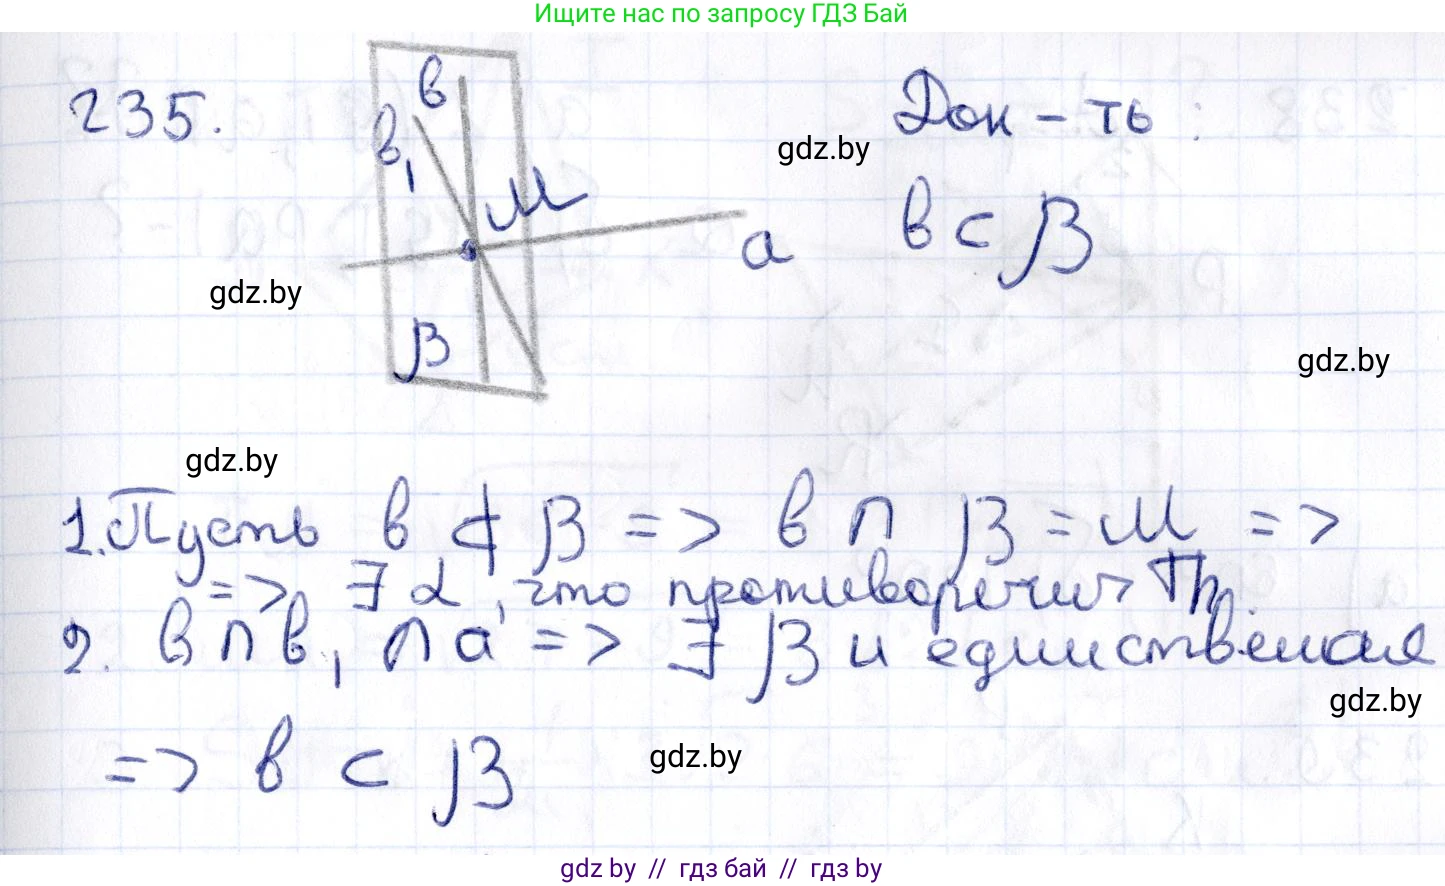 Ищите нас по запросу ГДЗ Бай
235.
в
в₁
М
а
β
Док-ть:
в ⊂ β
gdz.by
gdz.by
gdz.by
gdz.by
1. Пусть в ⊄ β => в ∩ β = М =>
=> ∃ α, что противоречит Th.
2. в ∩ в₁ ∩ а => ∃ β и единственная
gdz.by
gdz.by
=> в ⊂ β
gdz by // гдз бай // гдз by